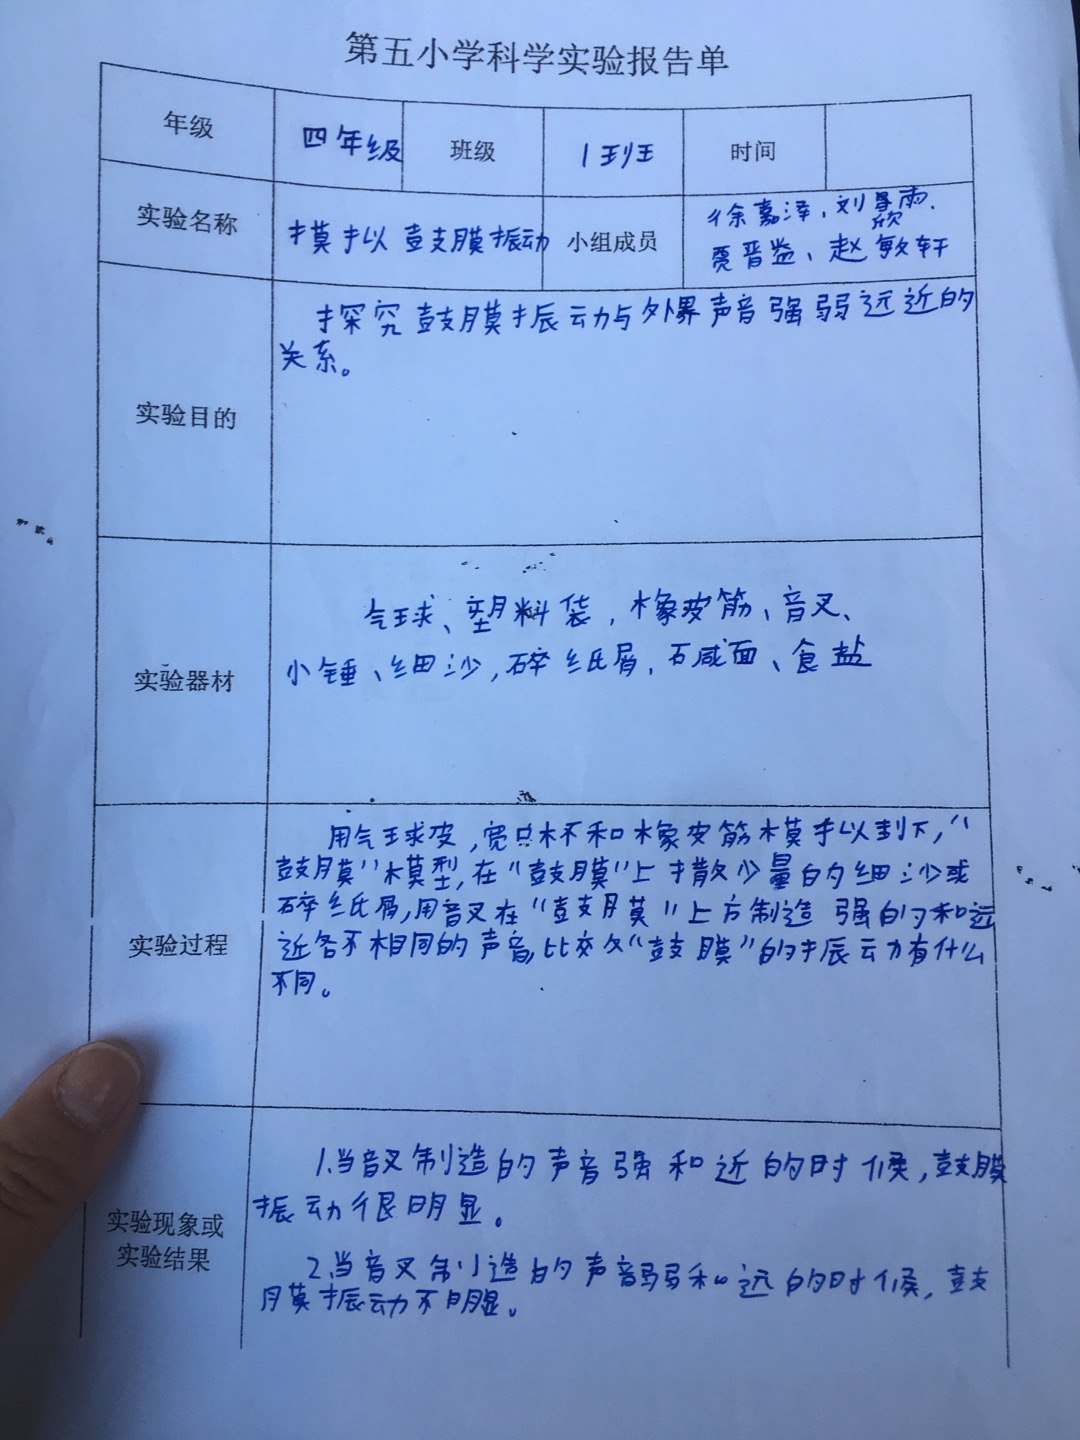 第五小学科学实验报告单
年级 四年级 班级 1班 时间
实验名称 摸拟鼓膜振动 小组成员 徐嘉泽、刘昴雨欣、
贾晋益、赵敏轩
实验目的 探究鼓膜振动与外界声音强弱远近的
关系。
实验器材 气球、塑料袋,橡皮筋、音叉、
小锤、细沙,碎纸屑、石咸面、食盐
实验过程 用气球皮,宽口杯和橡皮筋模拟制下,“
鼓膜”模型,在“鼓膜”上撒少量的细沙或
碎纸屑,用音叉在“鼓膜”上方制造强的和远
近各不相同的声音,比较“鼓膜”的振动有什么
不同。
实验现象或
实验结果
1.当音叉制造的声音强和近的时候,鼓膜
振动很明显。
2.当音叉制造的声音弱和远的时候,鼓
膜振动不明显。